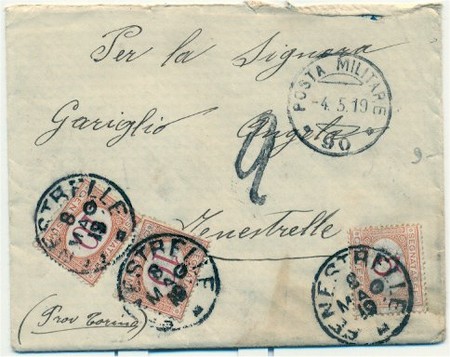 Per la Signora
POSTA MILITARE
-4.5.19
90
Gariglio Angela
9
Fenestrelle
FENESTRELLE
8
MAG
19
FENESTRELLE
8
MAG
19
FENESTRELLE
8
MAG
19
(Prov Torino)